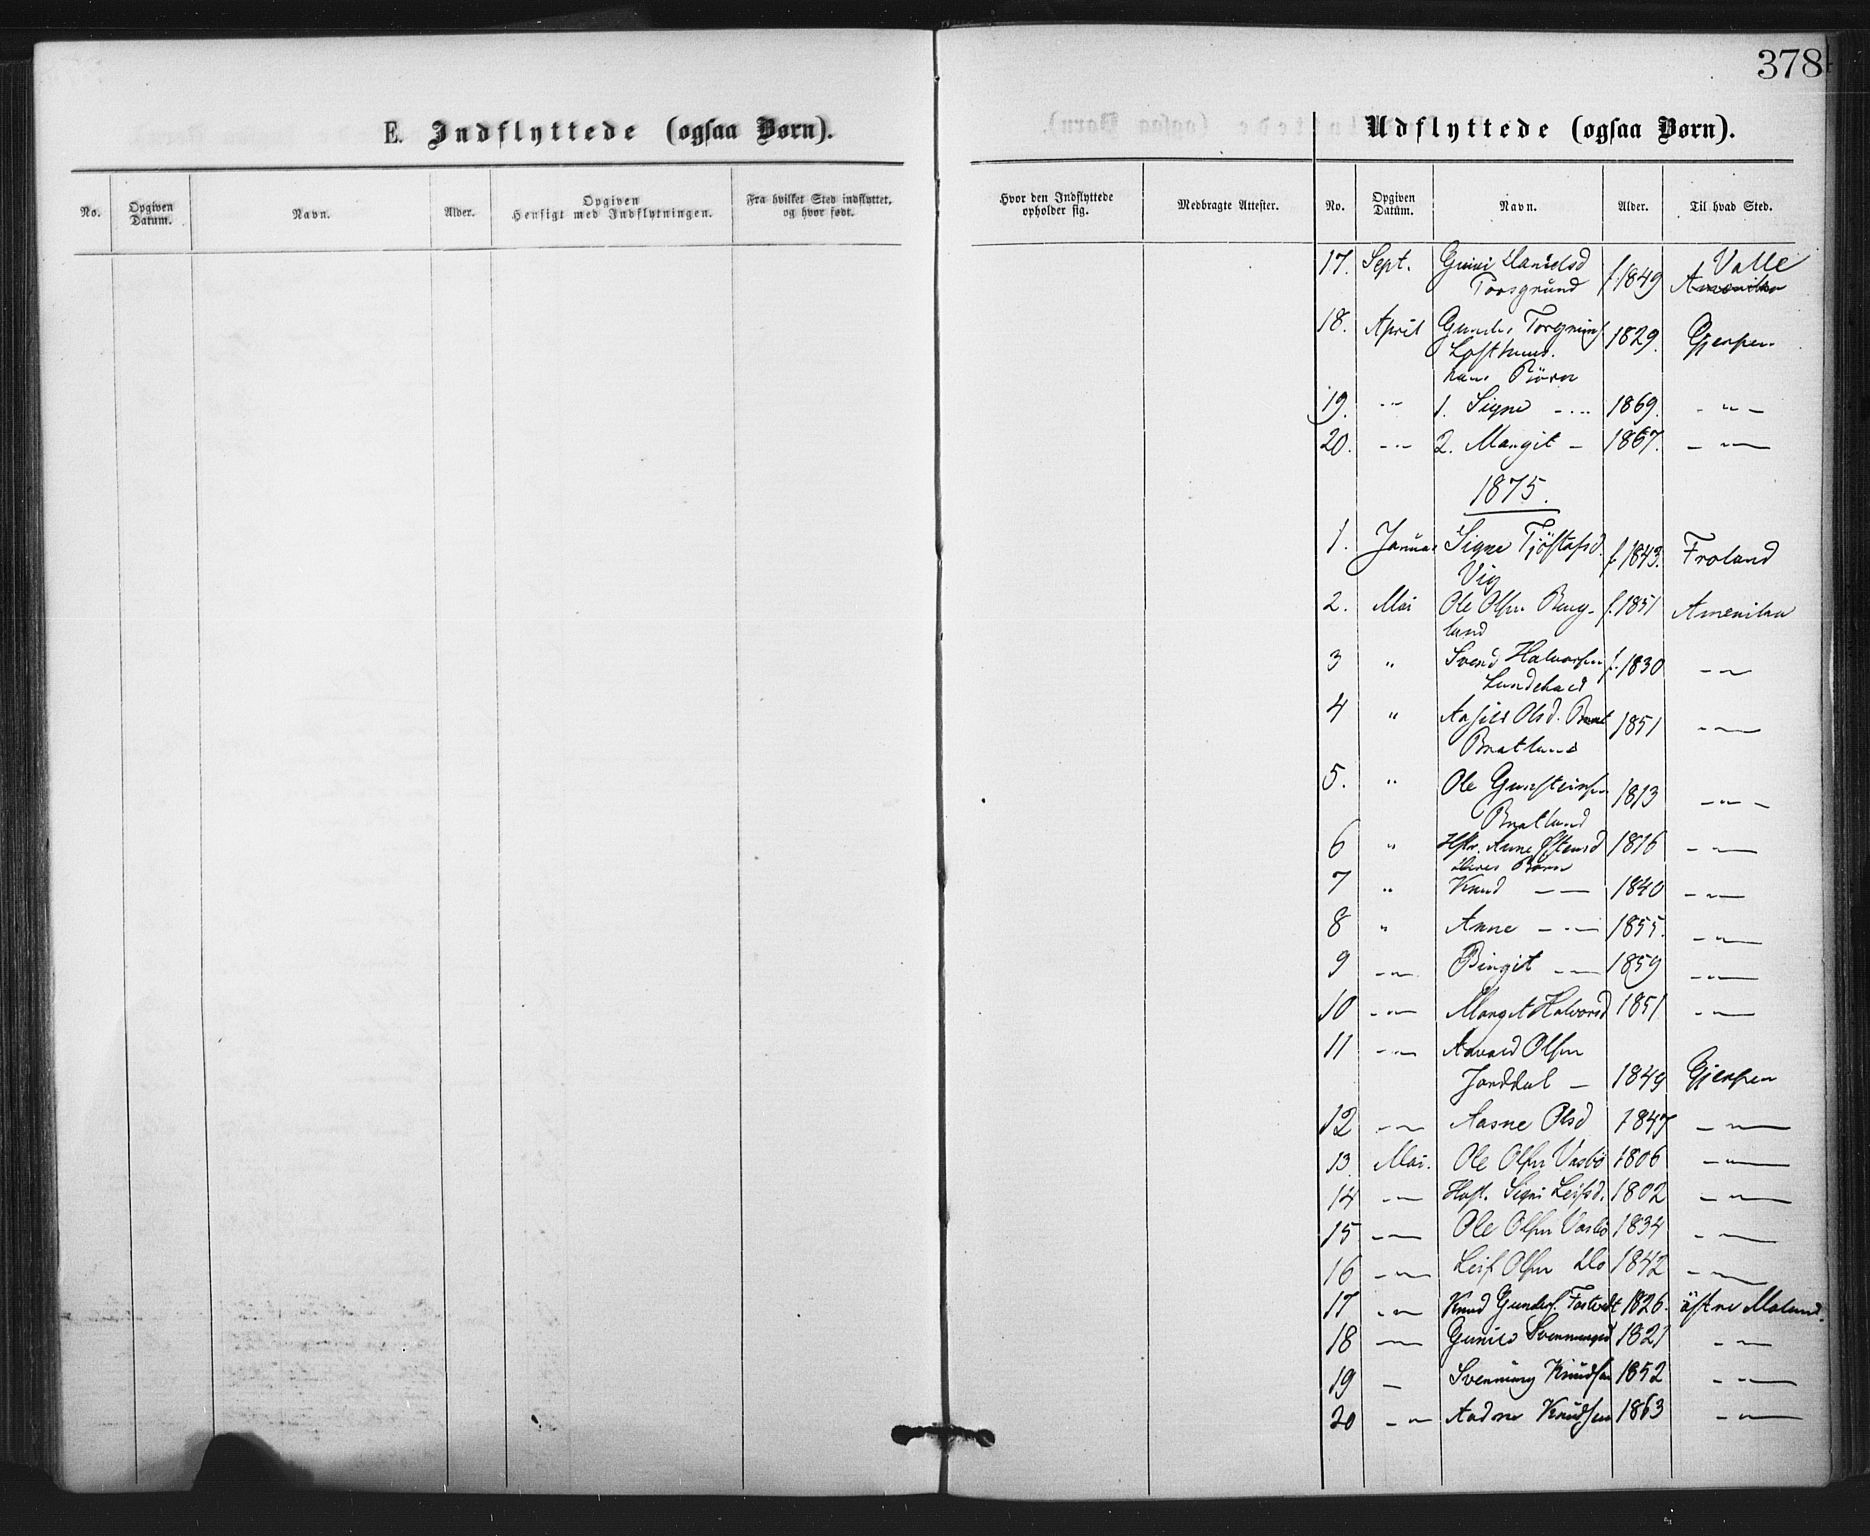 378
E. Indflyttede (ogsaa Børn).
Udflyttede (ogsaa Børn).
No.
Opgiven Datum.
Navn.
Alder.
Opgiven Hensigt med Indflytningen.
Fra hvilket Sted indflyttet, og hvor født.
Hvor den Indflyttede opholder sig.
Medbragte Attester.
No.
Opgiven Datum.
Navn.
Alder.
Til hvad Sted.
17. Sept. f. 1849 Valle
Amerika
18. April 1829. Gjerpen
hans Börn
19. -"- 1. Signe -"- 1869. -"-
20. -"- 2. Margit - 1867. -"-
1875.
1. Januar Signe Tjöstofsd. f. 1843. Froland
Vig
2. Mai Ole Olsen Berg- f. 1851 Amerika
land
3 " Svend Halvorsen f. 1830 -"-
4 " Olsd. 1851 -"-
Bratland
5. " Ole Gunsteinsen 1813 -"-
Bratland
6 " Hstr. Anne 1816 -"-
deres Børn
7 " Knud -"- 1840 -"-
8 " Anne -"- 1855. -"-
9 -"- Birgit -"- 1859 -"-
10 -"- Margit Halvorsd 1851 -"-
11 -"- Aavald Olsen
Jorddal - 1849 Gjerpen
12 -"- Aasne Olsd 1847 -"-
13. Mai. Ole Olsen Vasbö 1806 -"-
14 -"- Hust. Signi Leifsd. 1802 -"-
15 -"- Ole Olsen Vasbö 1834 -"-
16 -"- Leif Olsen Do 1842 -"-
17 -"- Knud Gunders. Fostvedt 1826. östre Moland.
18 -"- Gunild Svenningsd 1821 -"-
19 - Svenning Knudsen 1852 -"-
20 -"- Knudsen 1863 -"-